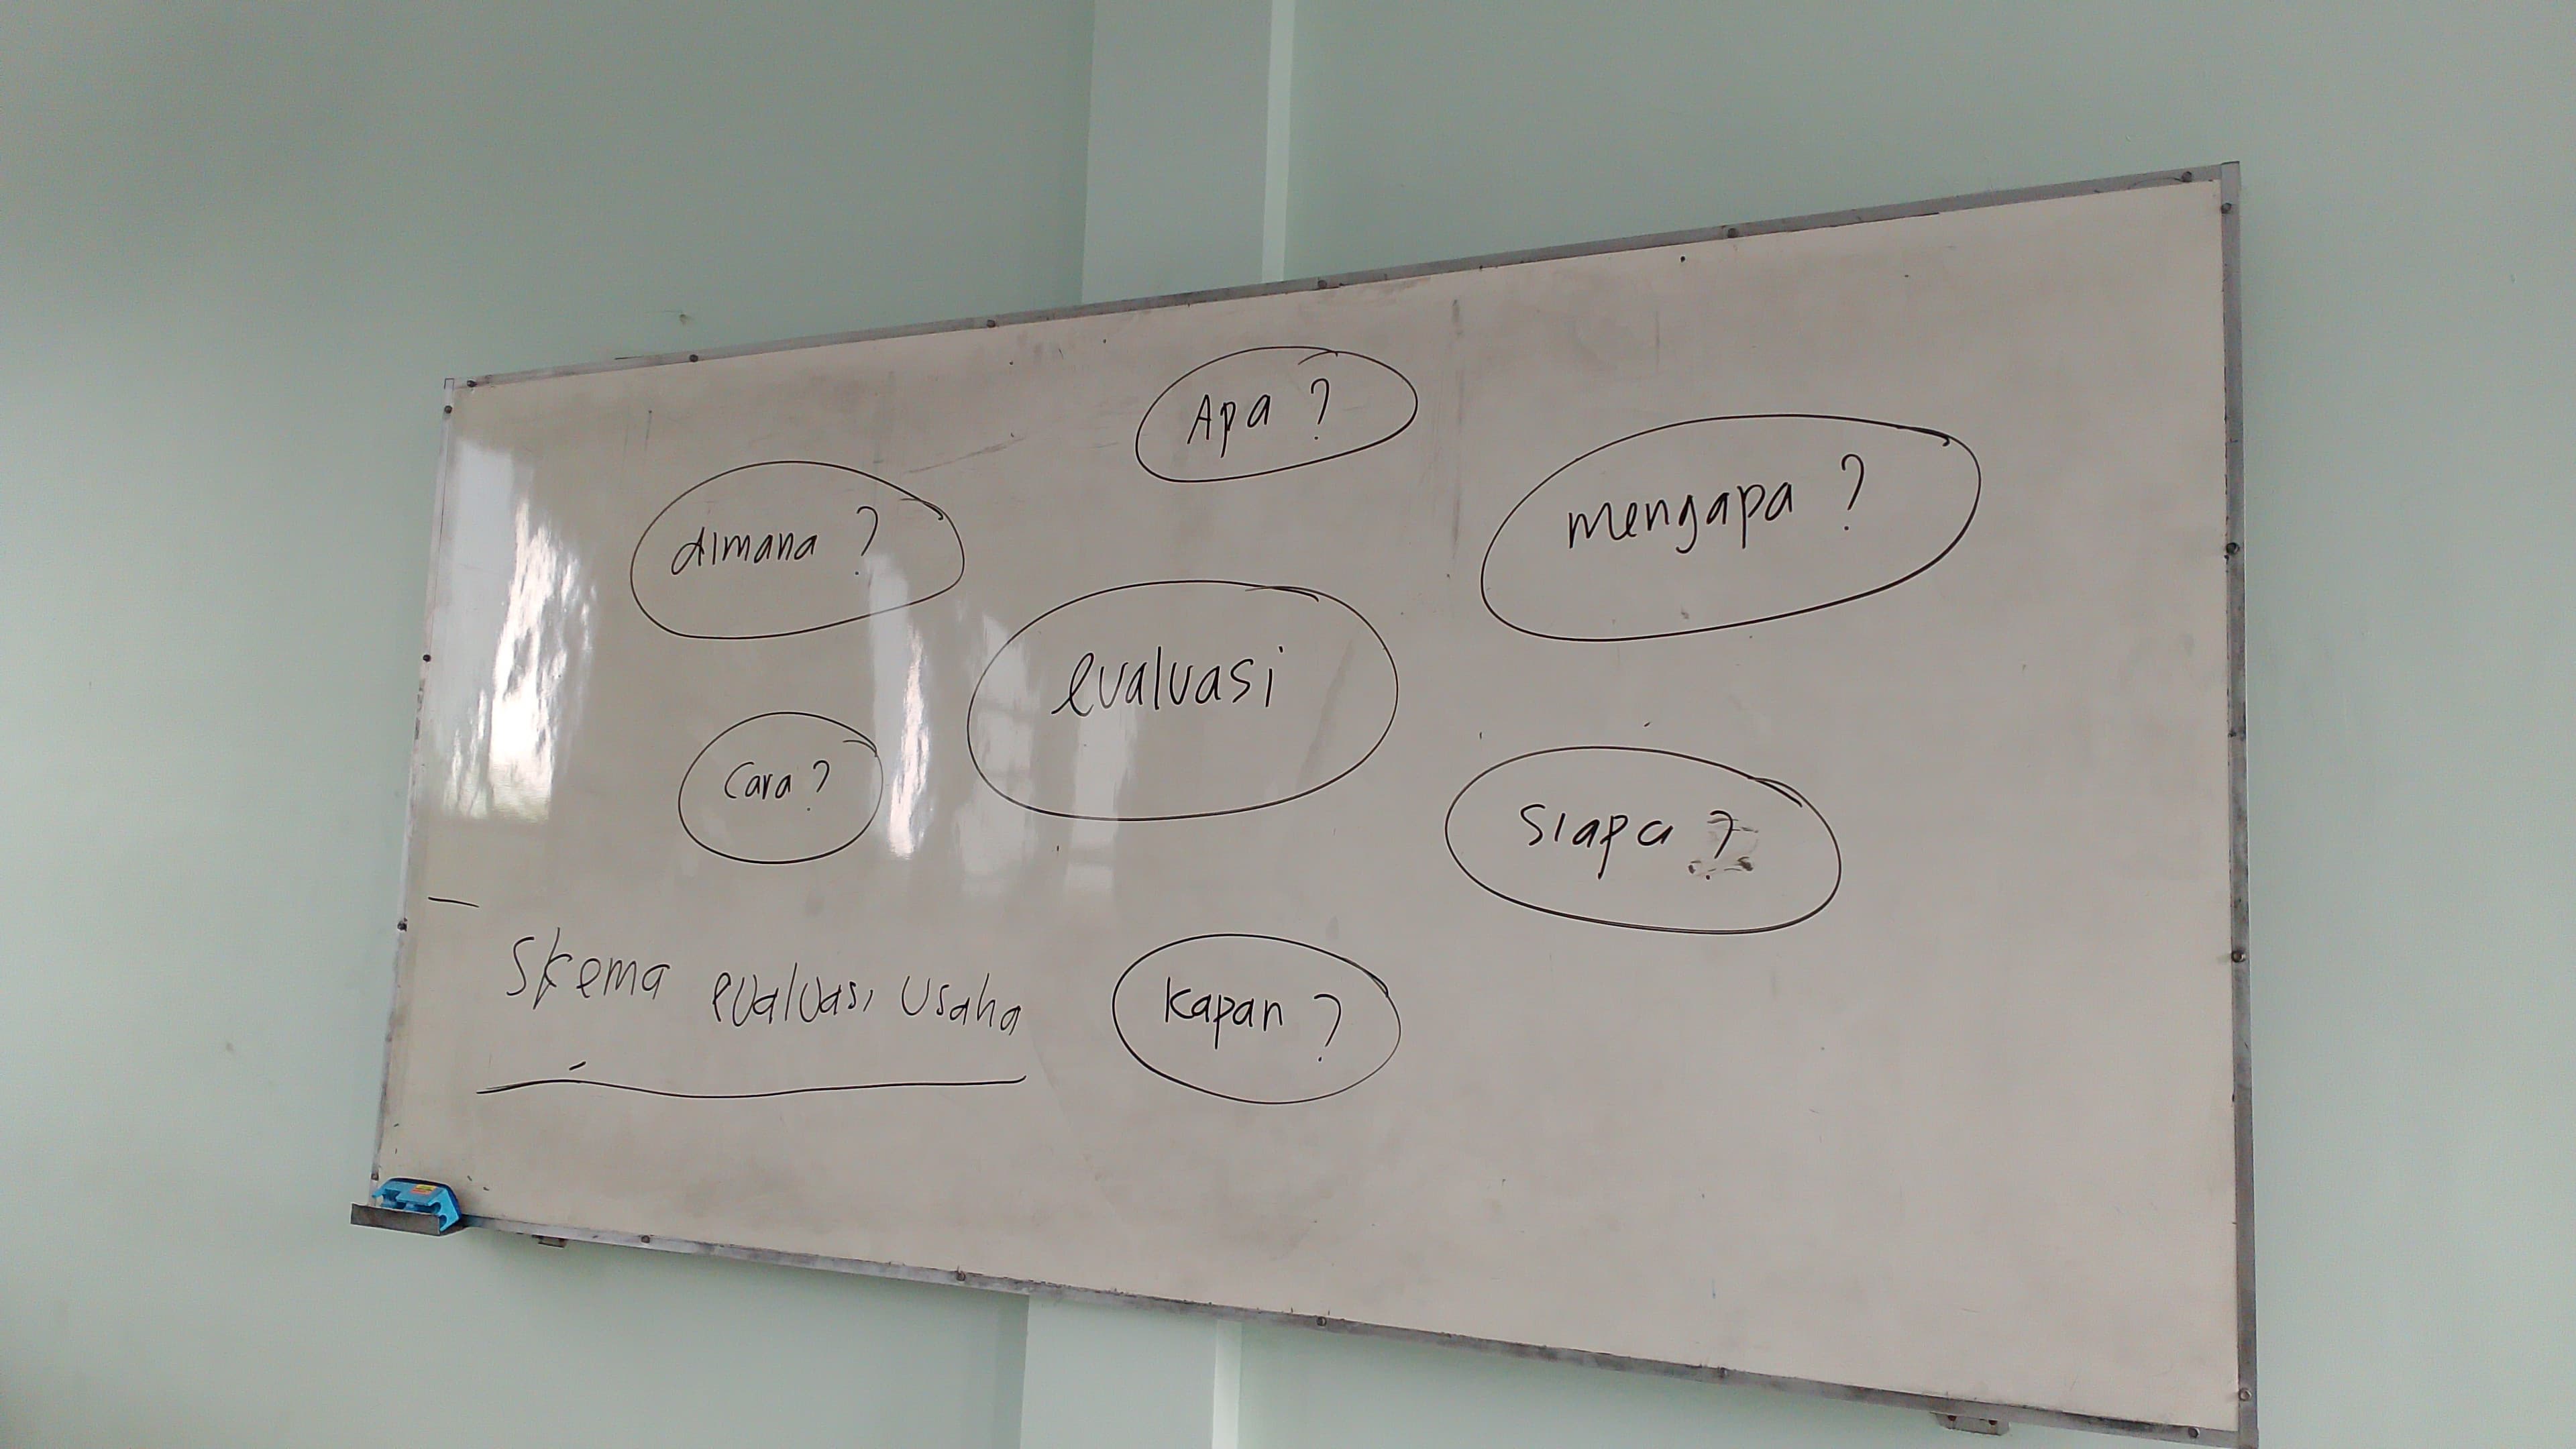 Apa ?
dimana ?
mengapa ?
evaluasi
Cara ?
Siapa ?
Skema evaluasi usaha
Kapan ?